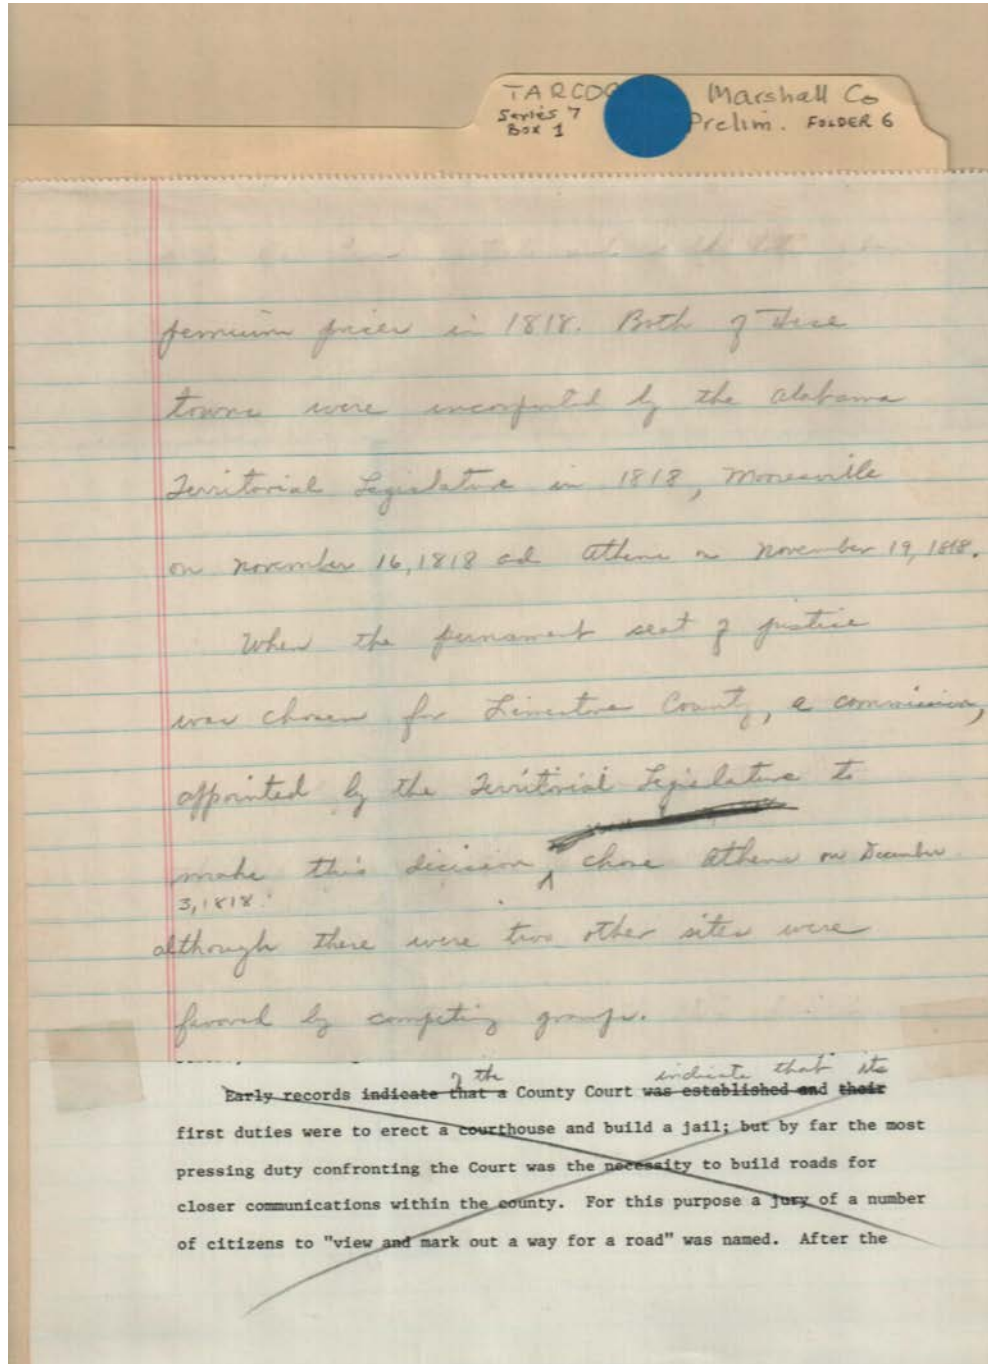 TARCOG Marshall Co
Series 7 Prelim. FOLDER 6
Box 1
premium prices in 1818. Both of these
towns were incorporated by the Alabama
Territorial Legislature in 1818, Mooresville
on November 16, 1818 and Athens on November 19, 1818.
When the permanent seat of justice
was chosen for Limestone County, a commission,
appointed by the Territorial Legislature to
make this decision, chose Athens on December
3, 1818.
although there were two other sites were
favored by competing groups.
of the indicate that its
Early records indicate that a County Court was established and their
first duties were to erect a courthouse and build a jail; but by far the most
pressing duty confronting the Court was the necessity to build roads for
closer communications within the county. For this purpose a jury of a number
of citizens to "view and mark out a way for a road" was named. After the